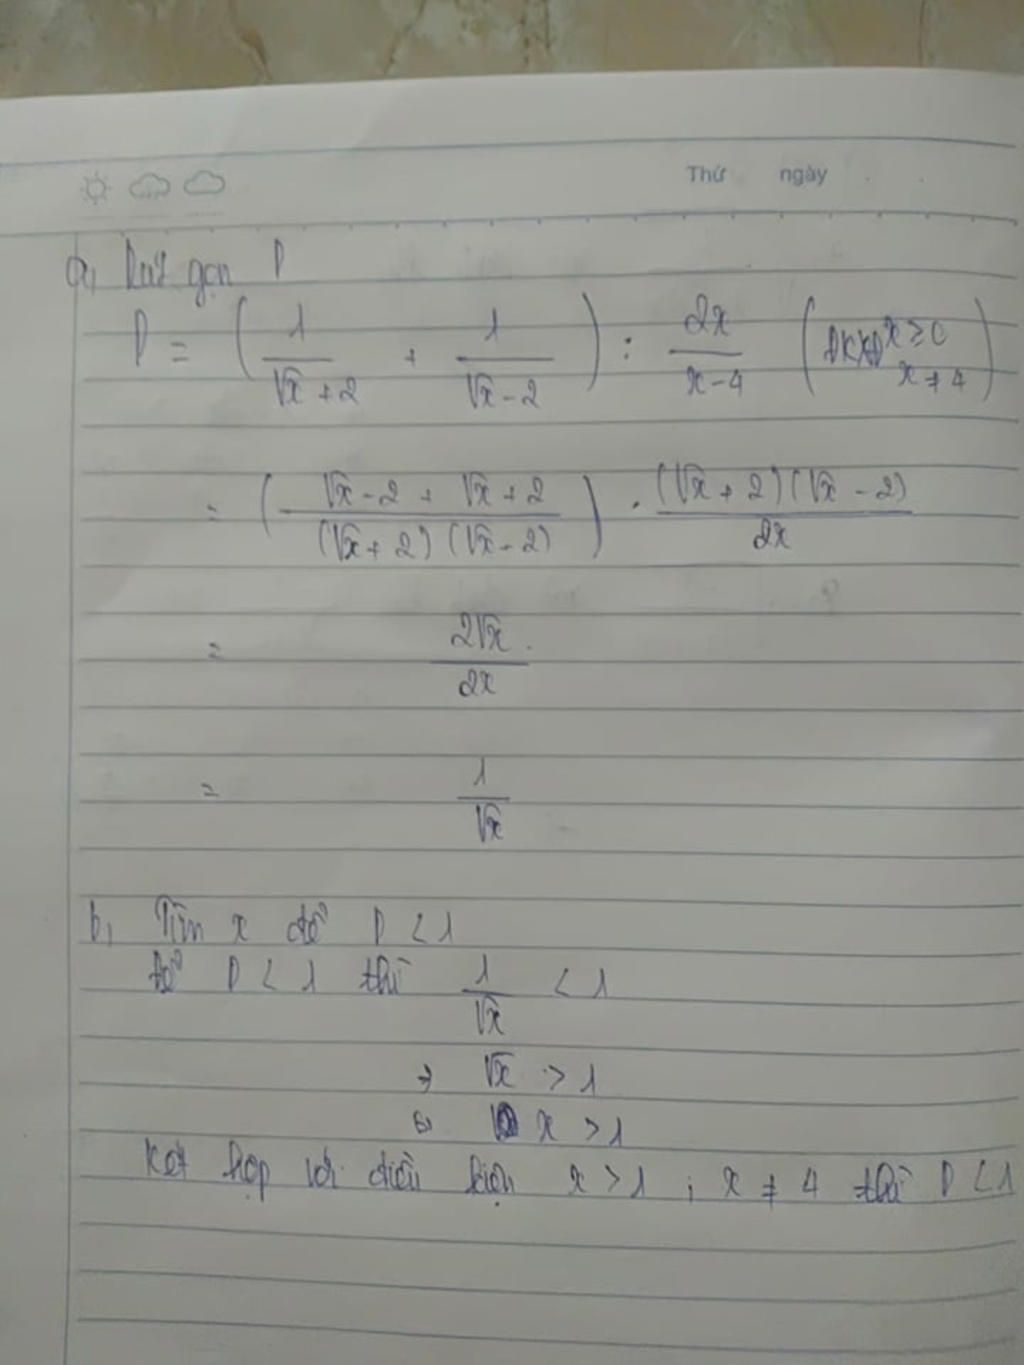 Thứ ngày
a, Rút gọn P
P = ( 1/(√x + 2) + 1/(√x - 2) ) : 2x/(x - 4) ( ĐKXĐ x ≥ 0 x ≠ 4 )
= ( (√x - 2 + √x + 2)/((√x + 2)(√x - 2)) ) . ((√x + 2)(√x - 2))/2x
= 2√x/2x
= 1/√x
b, Tìm x để P < 1
Để P < 1 thì 1/√x < 1
⇒ √x > 1
⇔ x > 1
Kết hợp với điều kiện x > 1 ; x ≠ 4 thì P < 1